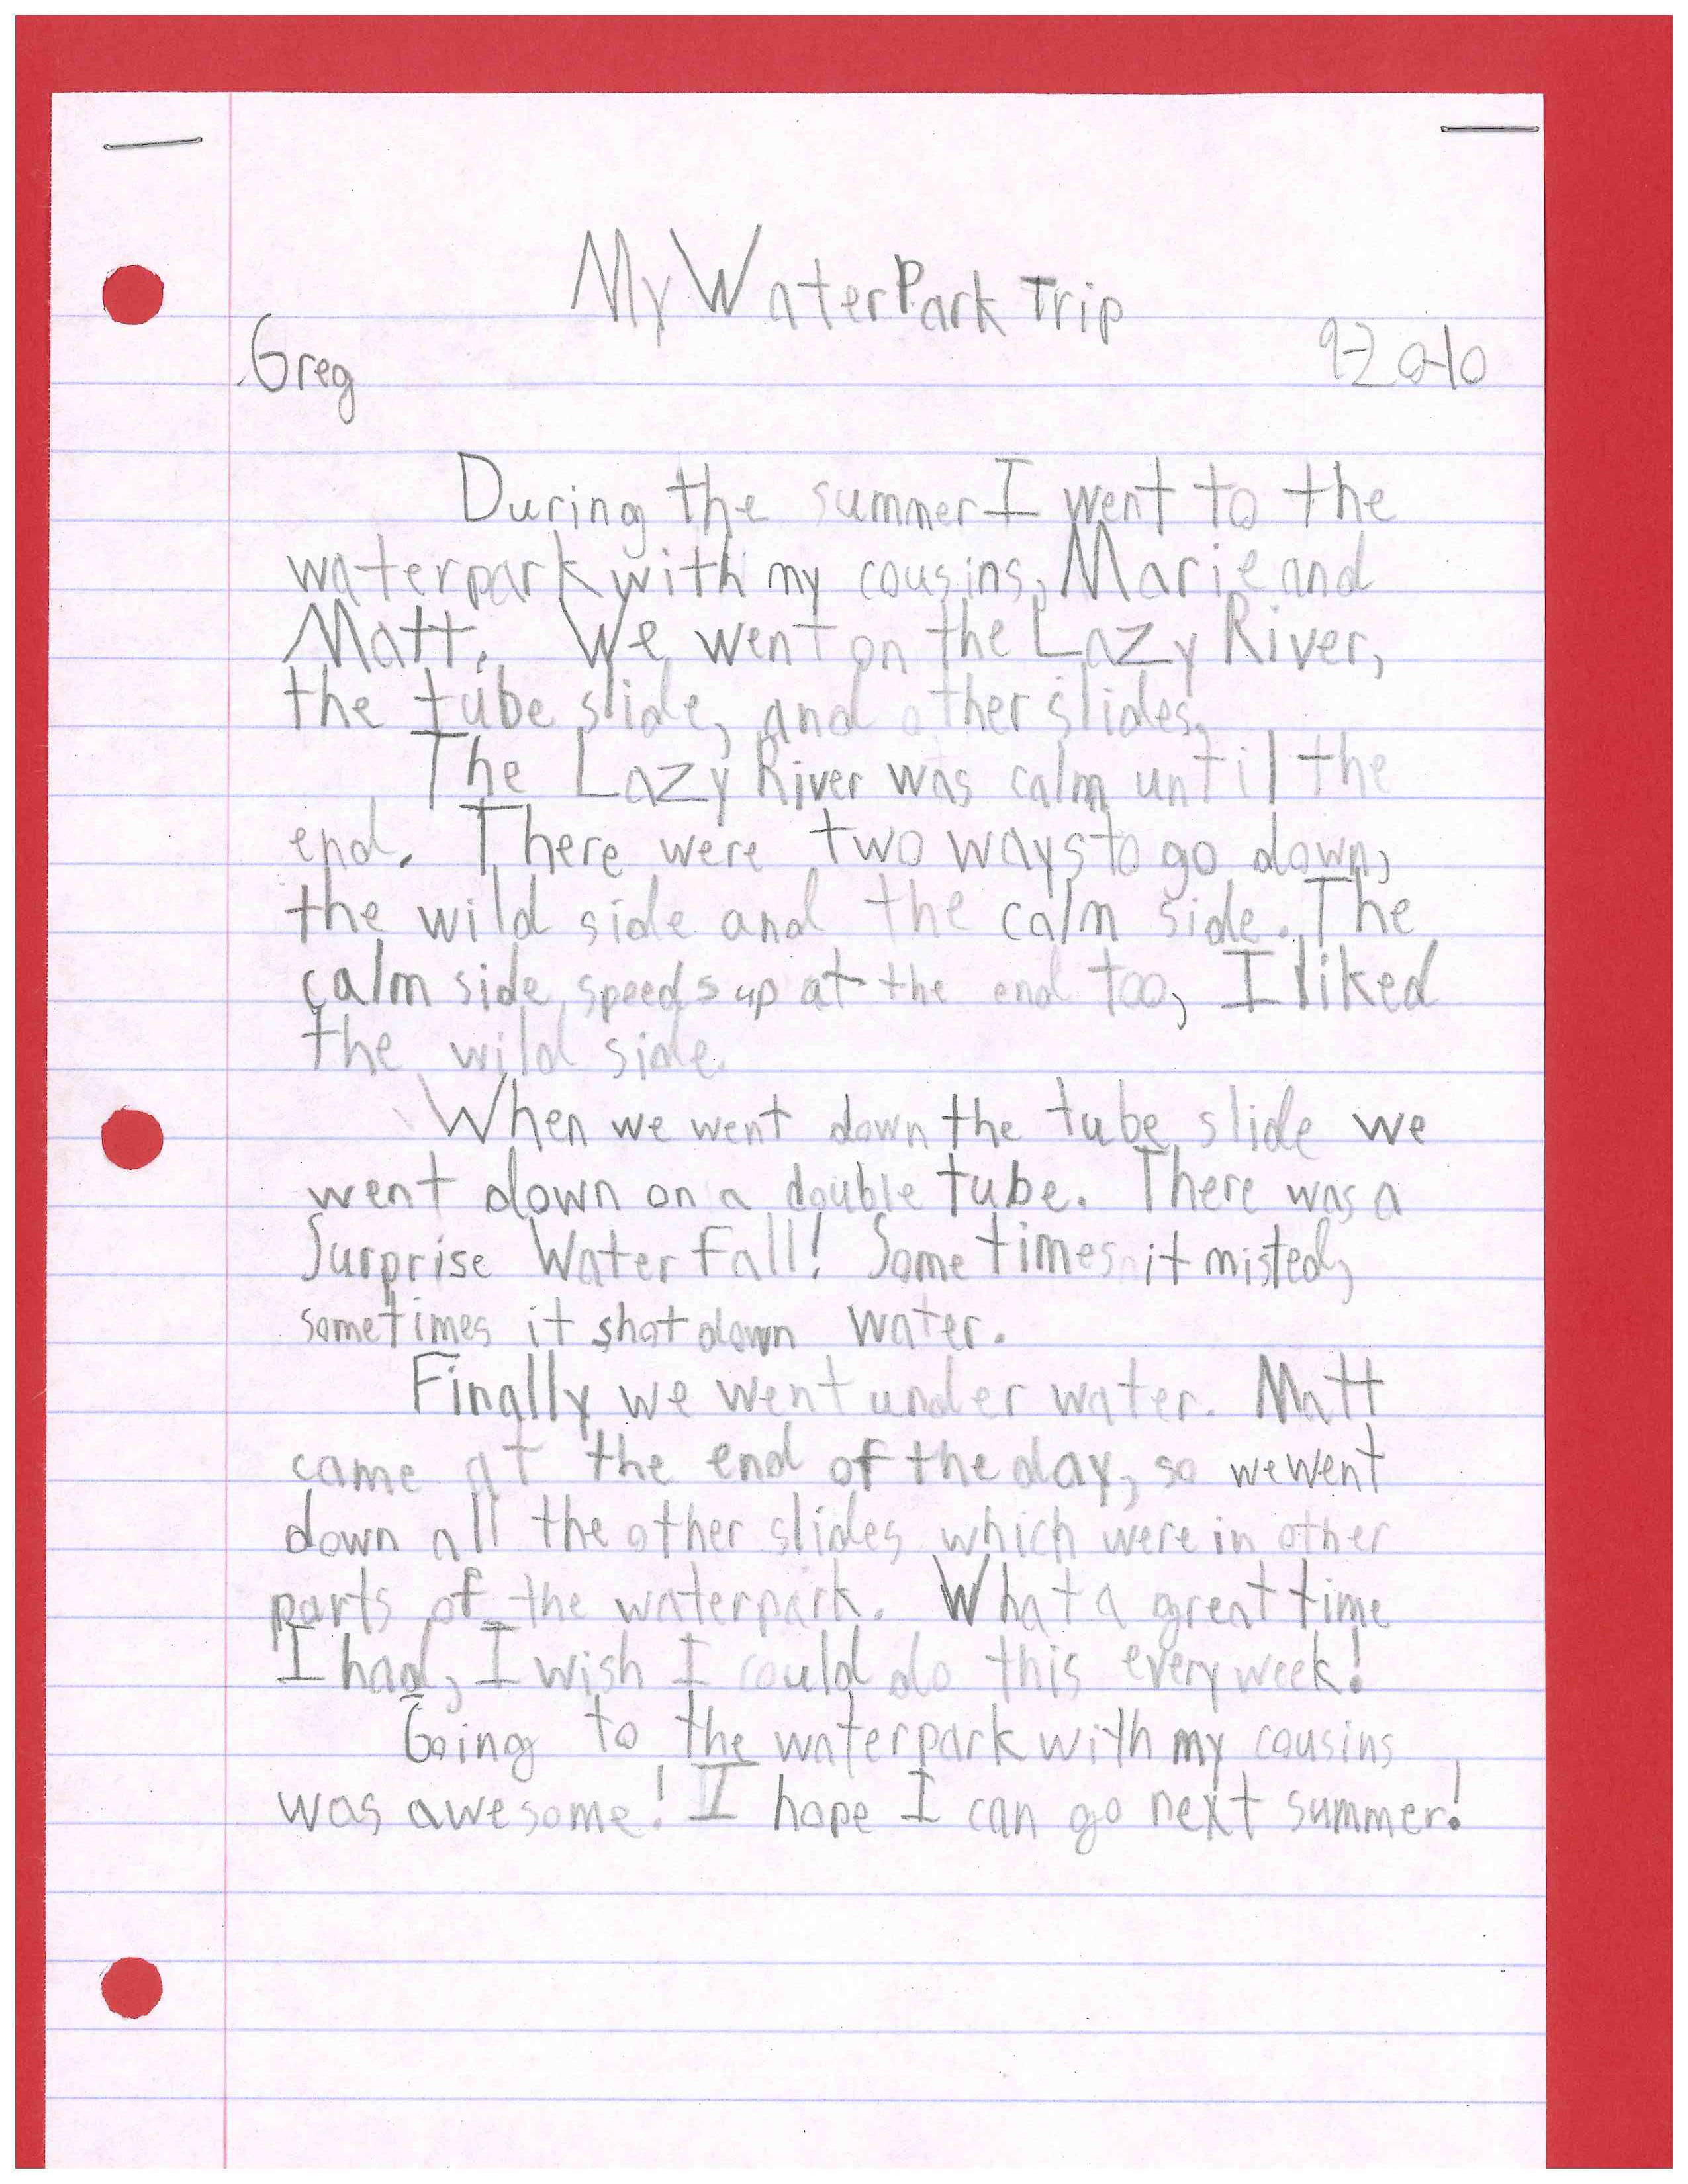 My Water Park Trip
Greg 9-20-10
During the summer I went to the
waterpark with my cousins, Marie and
Matt. We went on the Lazy River,
the tube slide, and other slides.
The Lazy River was calm until the
end. There were two ways to go down,
the wild side and the calm side. The
calm side speeds up at the end too, I liked
the wild side.
When we went down the tube slide we
went down on a double tube. There was a
Surprise Water fall! Some times it misted,
sometimes it shot down water.
Finally we went under water. Matt
came at the end of the day, so we went
down all the other slides which were in other
parts of the waterpark. What a great time
I had, I wish I could do this every week!
Going to the waterpark with my cousins
was awesome! I hope I can go next summer!